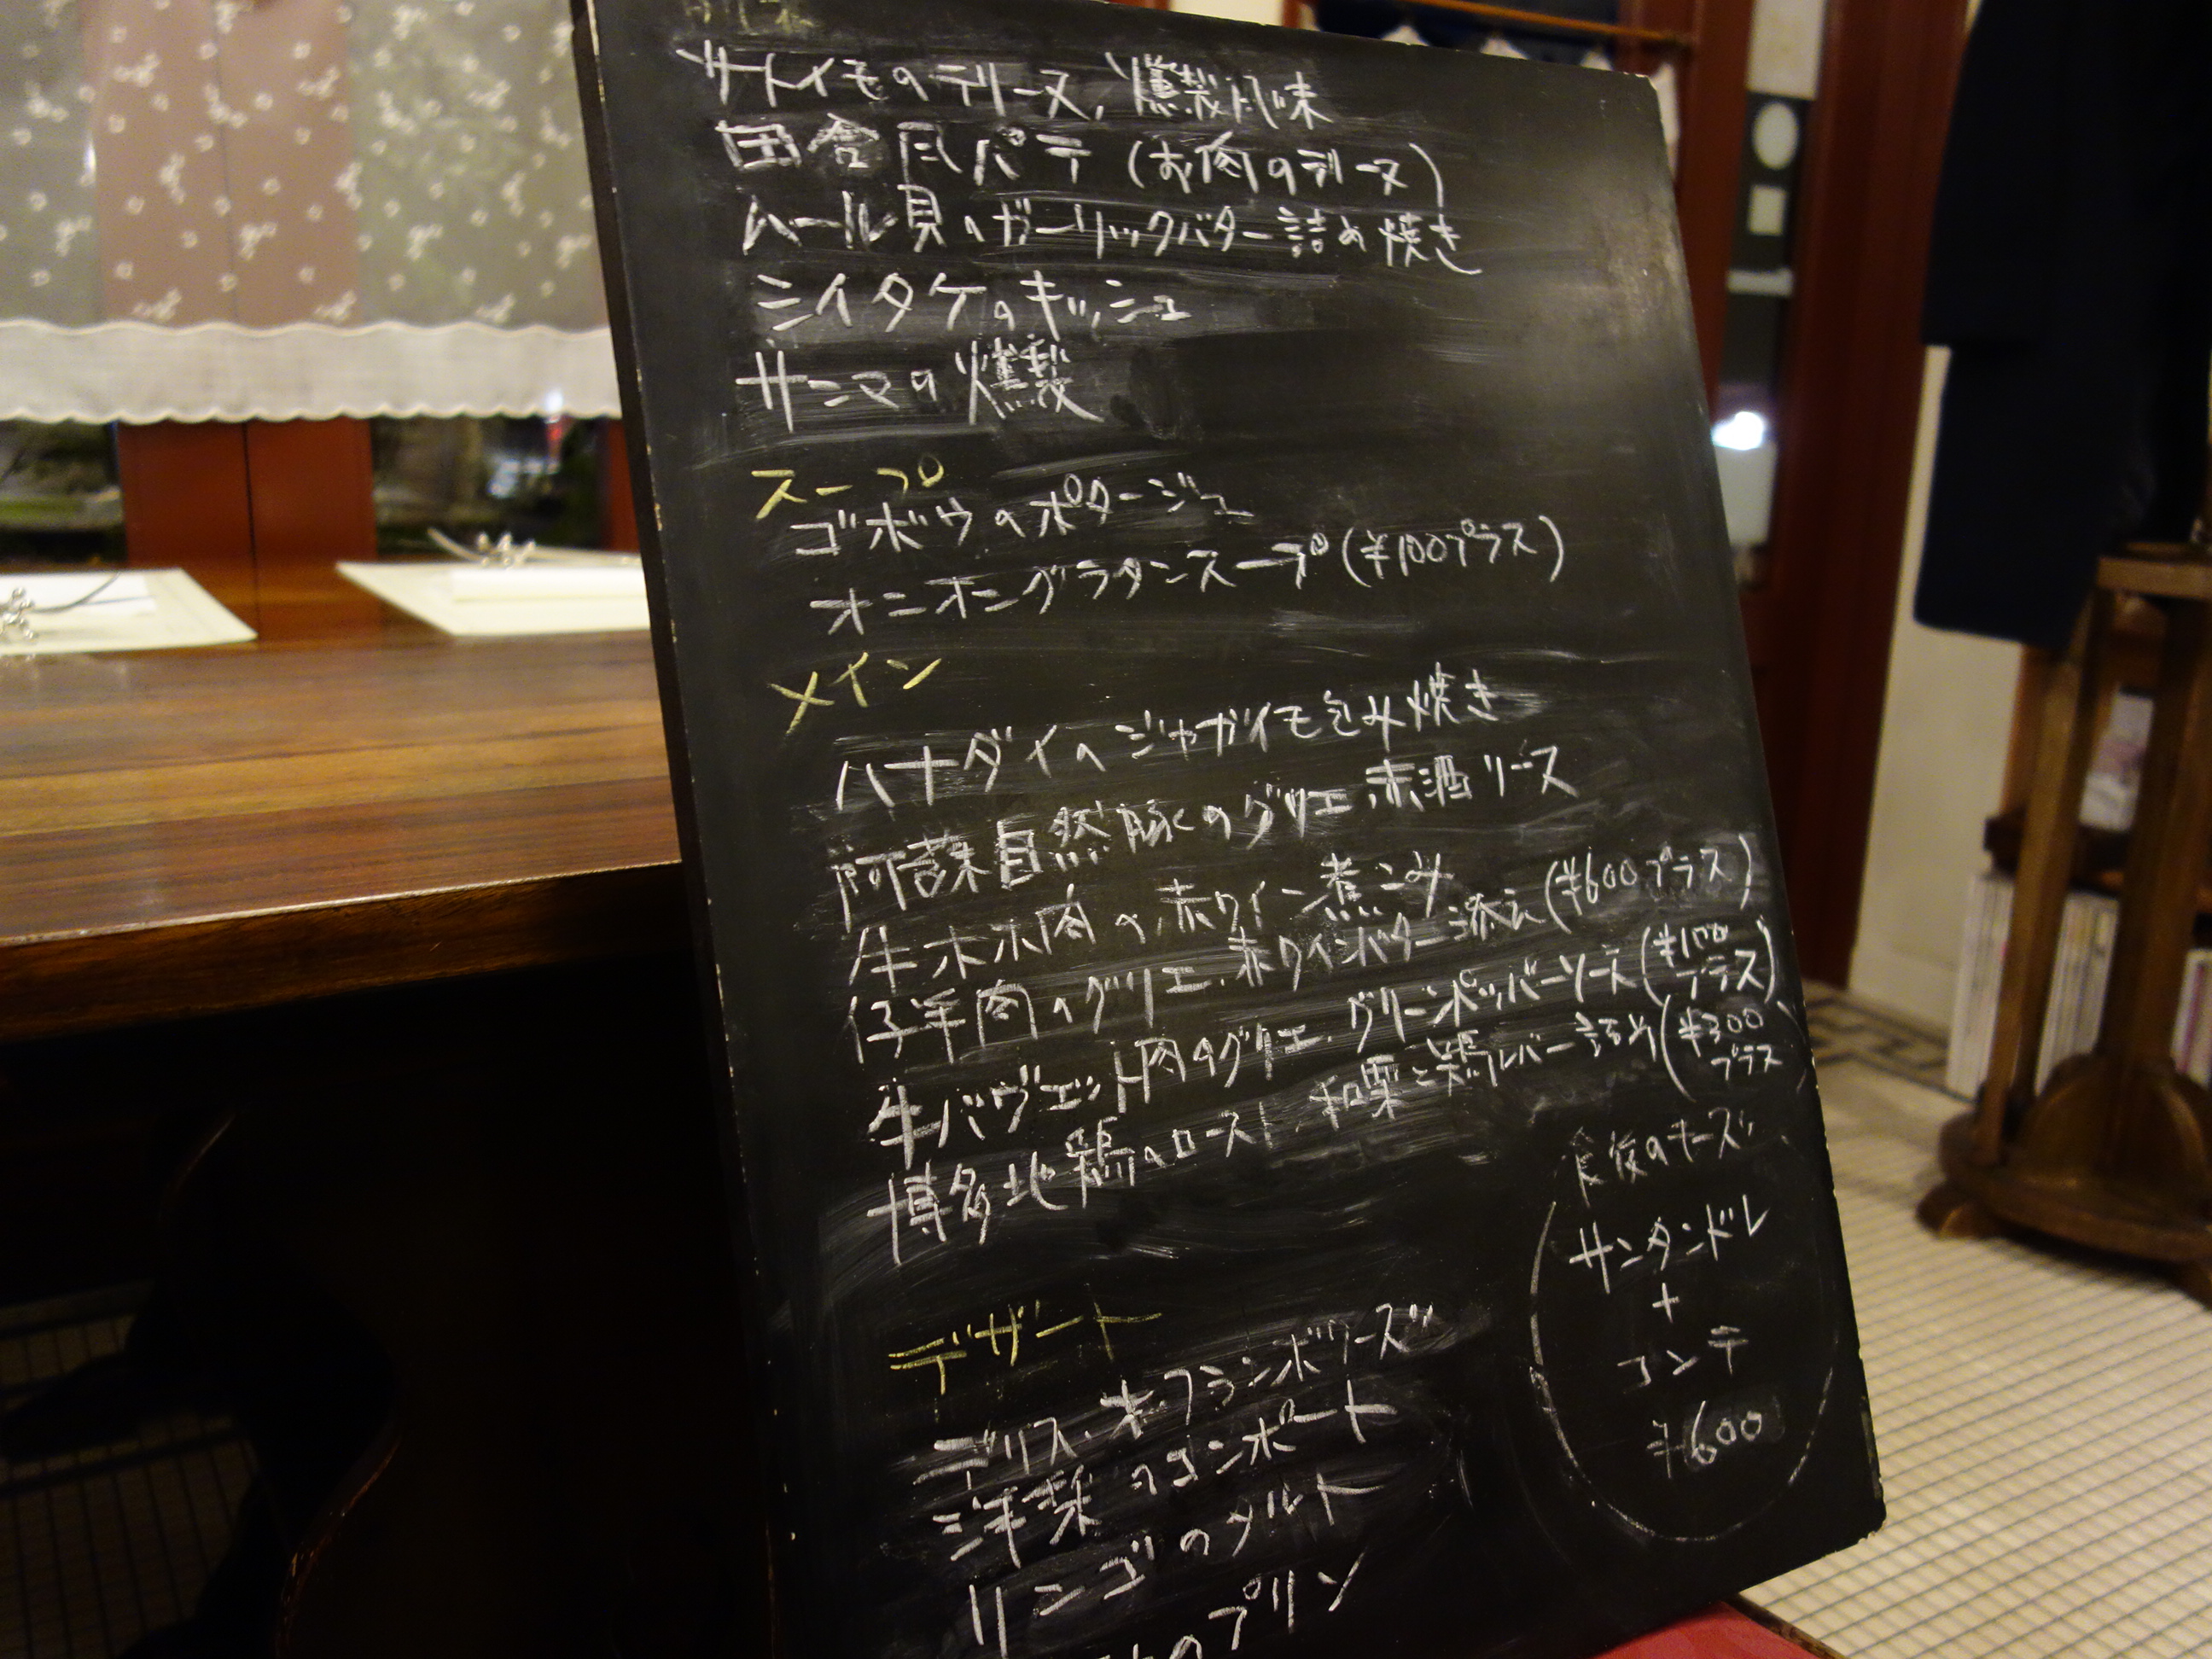 サトイモのテリーヌ, 燻製風味
田舎風パテ (お肉のテリーヌ)
ムール貝のガーリックバター詰め焼き
シイタケのキッシュ
サンマの燻製
スープ
ゴボウのポタージュ
オニオングラタンスープ (¥100プラス)
メイン
ハナダイのジャガイモ包み焼き
阿蘇自然豚のグリエ 赤酒ソース
牛ホホ肉の赤ワイン煮こみ
仔羊肉のグリエ. 赤ワインバター添え (¥600プラス)
牛バヴェット肉のグリエ. グリーンペッパーソース (¥100プラス)
博多地鶏のロースト 和栗と鶏レバー詰め (¥300プラス)
食後のチーズ
サンタンドレ
+
コンテ
¥600
デザート
デリス・オ・フランボワーズ
洋梨のコンポート
リンゴのタルト
のプリン